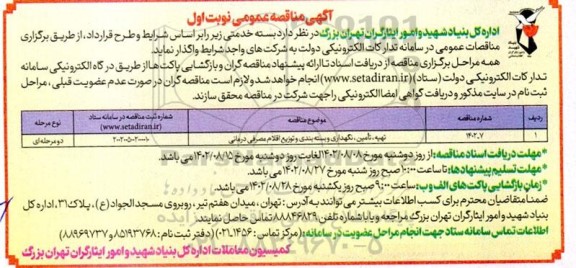 آگهی مناقصه عمومی نوبت اول
اداره کل بنیاد شهید و امور ایثارگران تهران بزرگ در نظر دارد بسته خدمتی زیر را بر اساس شرایط و طرح قرارداد، از طریق برگزاری
مناقصات عمومی در سامانه تدارکات الکترونیکی دولت به شرکت های واجد شرایط واگذار نماید.
همه مراحل برگزاری مناقصه از دریافت اسناد تا ارائه پیشنهاد مناقصه گران و بازگشایی پاکت ها از طریق درگاه الکترونیکی سامانه
تدارکات الکترونیکی دولت (ستاد) (www.setadiran.ir) انجام خواهد شد و لازم است مناقصه گران در صورت عدم عضویت قبلی، مراحل
ثبت نام در سایت مذکور و دریافت گواهی امضا الکترونیکی را جهت شرکت در مناقصه محقق سازند.
ردیف شماره مناقصه موضوع مناقصه شماره ثبت مناقصه در سامانه ستاد (www.setadiran.ir) نوع مرحله
۱ ۱۴۰۲_۷ تهیه، تأمین، نگهداری و بسته بندی و توزیع اقلام مصرفی درمانی دو مرحله ای
*مهلت دریافت اسناد مناقصه: از روز دوشنبه مورخ ۱۴۰۲/۰۸/۰۸ لغایت روز دوشنبه مورخ ۱۴۰۲/۰۸/۱۵ می باشد.
*مهلت تسلیم پیشنهادها: تا ساعت ۱۰:۰۰ صبح روز شنبه مورخ ۱۴۰۲/۰۸/۲۷ می باشد.
*زمان بازگشایی پاکت های الف و ب: ساعت ۹:۰۰ صبح روز یکشنبه مورخ ۱۴۰۲/۰۸/۲۸ می باشد.
ضمنا متقاضیان محترم برای کسب اطلاعات بیشتر می توانند به آدرس: تهران، میدان هفتم تیر، روبروی مسجد الجواد (ع)، پلاک ۳۱، اداره کل
بنیاد شهید و امور ایثارگران تهران بزرگ مراجعه و یا با شماره تلفن: ۸۸۸۴۶۸۲۹ تماس حاصل نمایند.
اطلاعات تماس سامانه ستاد جهت انجام مراحل عضویت در سامانه: (مرکز تماس: ۰۲۱۱۴۵۶) (دفتر ثبت نام: ۸۵۱۹۳۷۶۸ و ۸۸۹۶۹۷۳۷)
کمیسیون معاملات اداره کل بنیاد شهید و امور ایثارگران تهران بزرگ